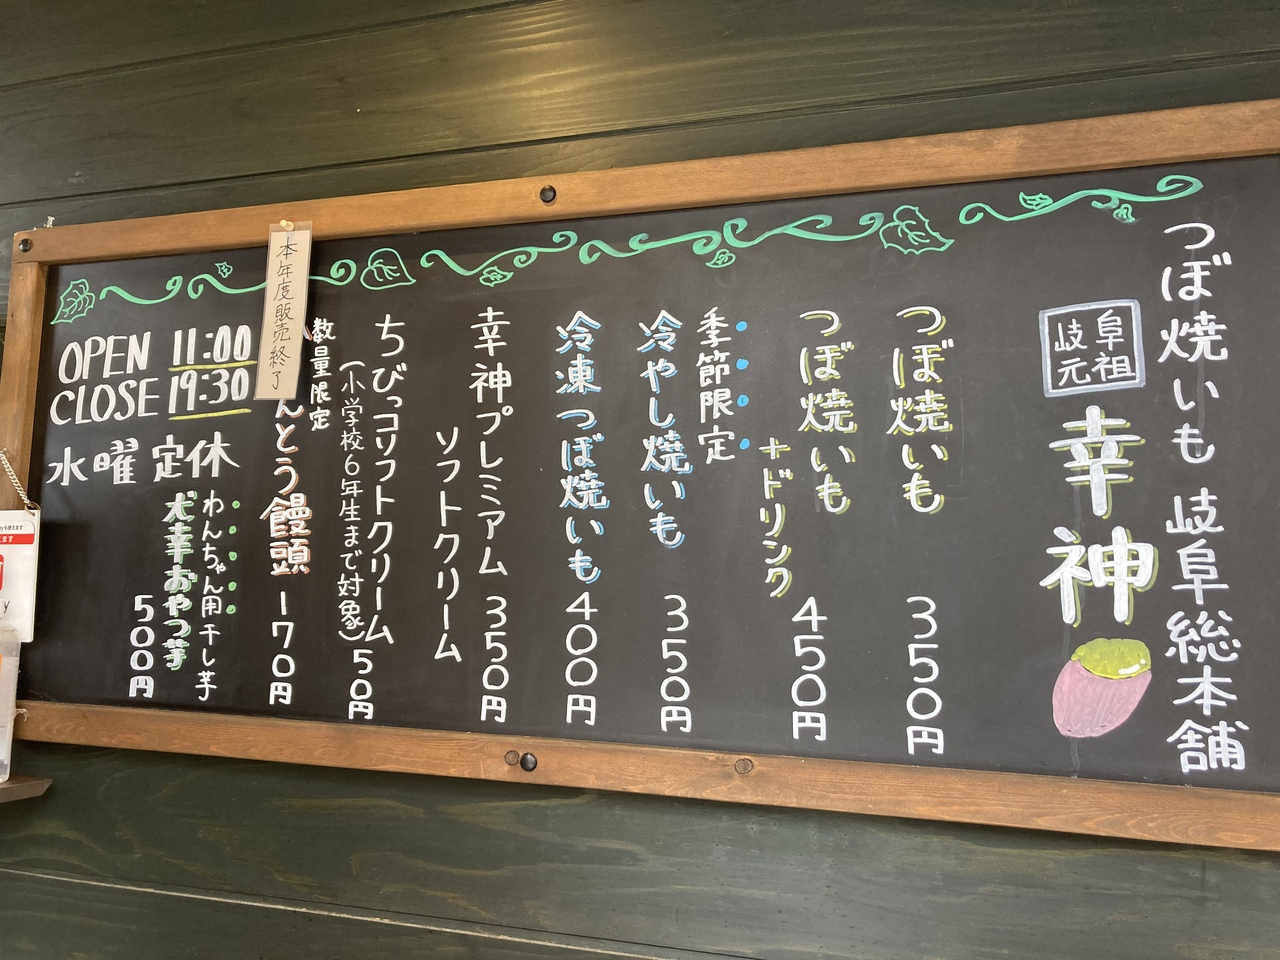 つぼ焼いも 岐阜総本舗
岐阜
元祖
幸神
つぼ焼いも 350円
つぼ焼いも
+ドリンク 450円
季節限定
冷やし焼いも 350円
冷凍つぼ焼いも 400円
幸神プレミアム
ソフトクリーム 350円
ちびっコソフトクリーム
(小学校6年生まで対象) 50円
数量限定
本年度販売終了
んとう饅頭 170円
わんちゃん用干し芋
犬幸おやつ芋
500円
OPEN 11:00
CLOSE 19:30
水曜定休